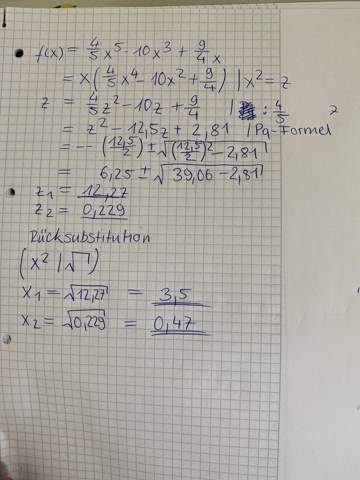 f(x) = 4/5 x⁵ - 10x³ + 9/4 x
= x(4/5 x⁴ - 10x² + 9/4) | x² = z
z = 4/5 z² - 10z + 9/4 | : 4/5
= z² - 12,5z + 2,81 | Pq-Formel
= -- (12,5/2) ± √((12,5/2)² - 2,81)
= 6,25 ± √(39,06 - 2,81)
z₁ = 12,27
z₂ = 0,229
Rücksubstitution
(x² | √)
x₁ = √12,27 = 3,5
x₂ = √0,229 = 0,47